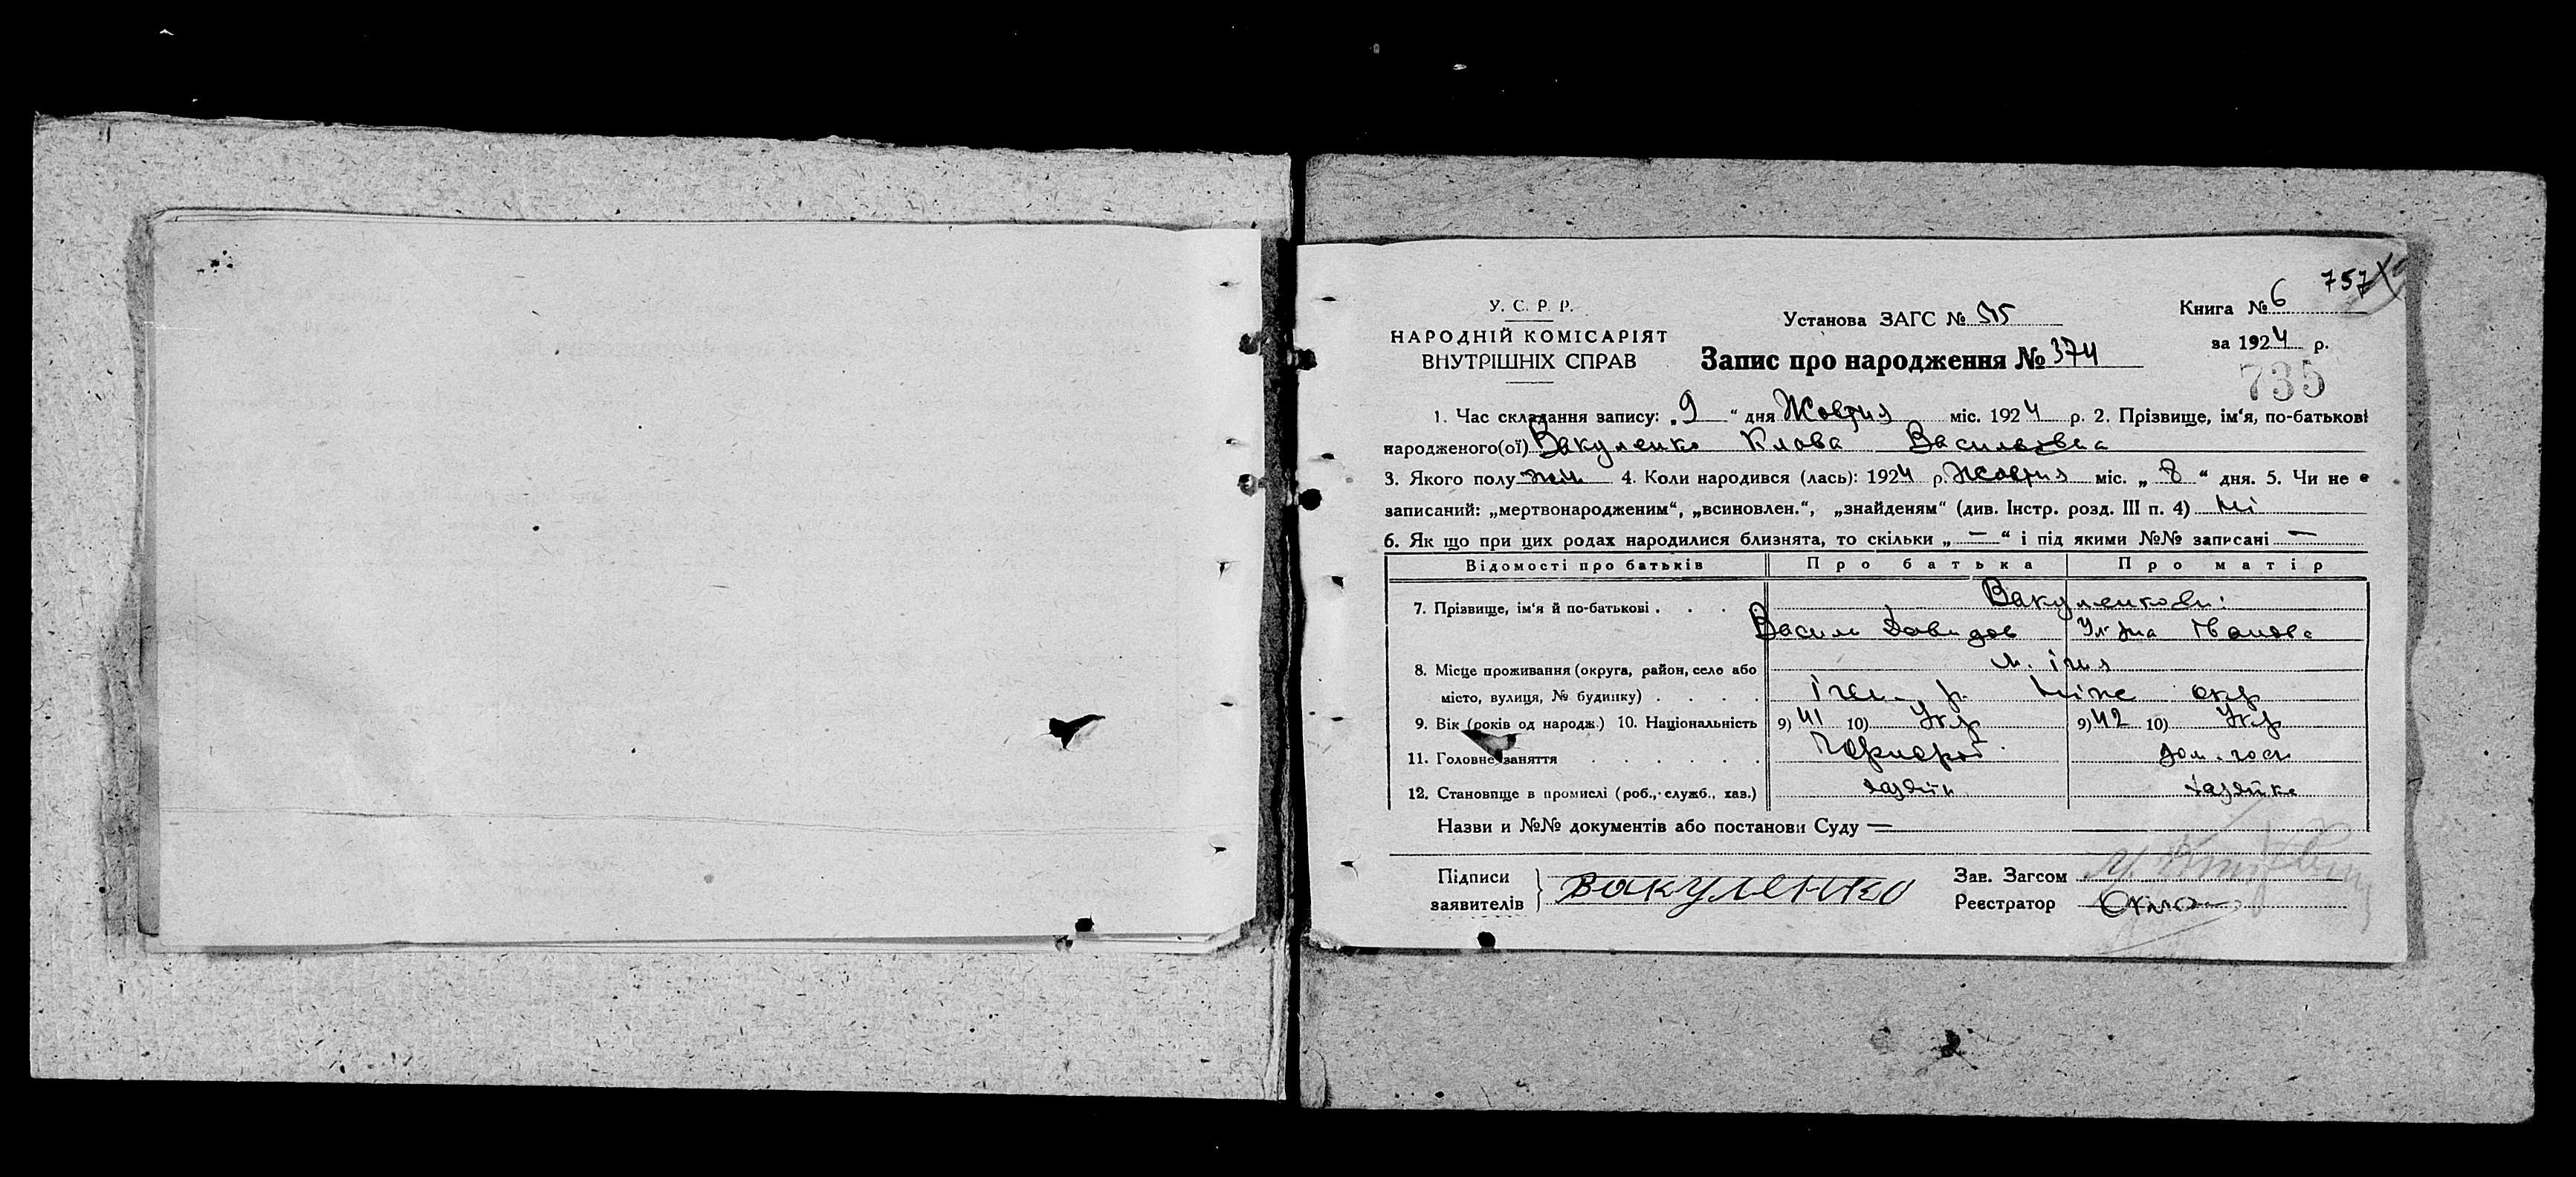 757
У. С. Р. Р.
НАРОДНІЙ КОМІСАРІЯТ
ВНУТРІШНІХ СПРАВ
Установа ЗАГС № 515
Запис про народження № 374
Книга № 6
за 1924 р.
735
1. Час складання запису: „9“ дня Жовтня міс. 1924 р. 2. Прізвище, ім'я, по-батькові
народженого(ої) Вакуленко Клава Васильовна
3. Якого полу жін. 4. Коли народився (лась): 1924 р. Жовтня міс. „8“ дня. 5. Чи не є
записаний: „мертвонародженим“, „всиновлен.“, „знайденям“ (див. Інстр. розд. III п. 4) Ні
6. Як що при цих родах народилися близнята, то скільки „—“ і під якими №№ записані —
Відомості про батьків Про батька Про матір
7. Прізвище, ім'я й по-батькові . . . Вакуленкови:
Василь Давидов Уляна Іванова
8. Місце проживання (округа, район, село або м. Ічня
місто, вулиця, № будинку) . . . . Ічен. р. Ніже окр
9. Вік (років од народж.) 10. Національність 9) 41 10) Укр 9) 42 10) Укр
11. Головне заняття . . . . . . Чорнороб дом. госп
12. Становище в промислі (роб., служб., хаз.) хазяїн хазяйка
Назви и №№ документів або постанови Суду —
Підписи
заявителів } Вакуленко
Зав. Загсом
Реєстратор